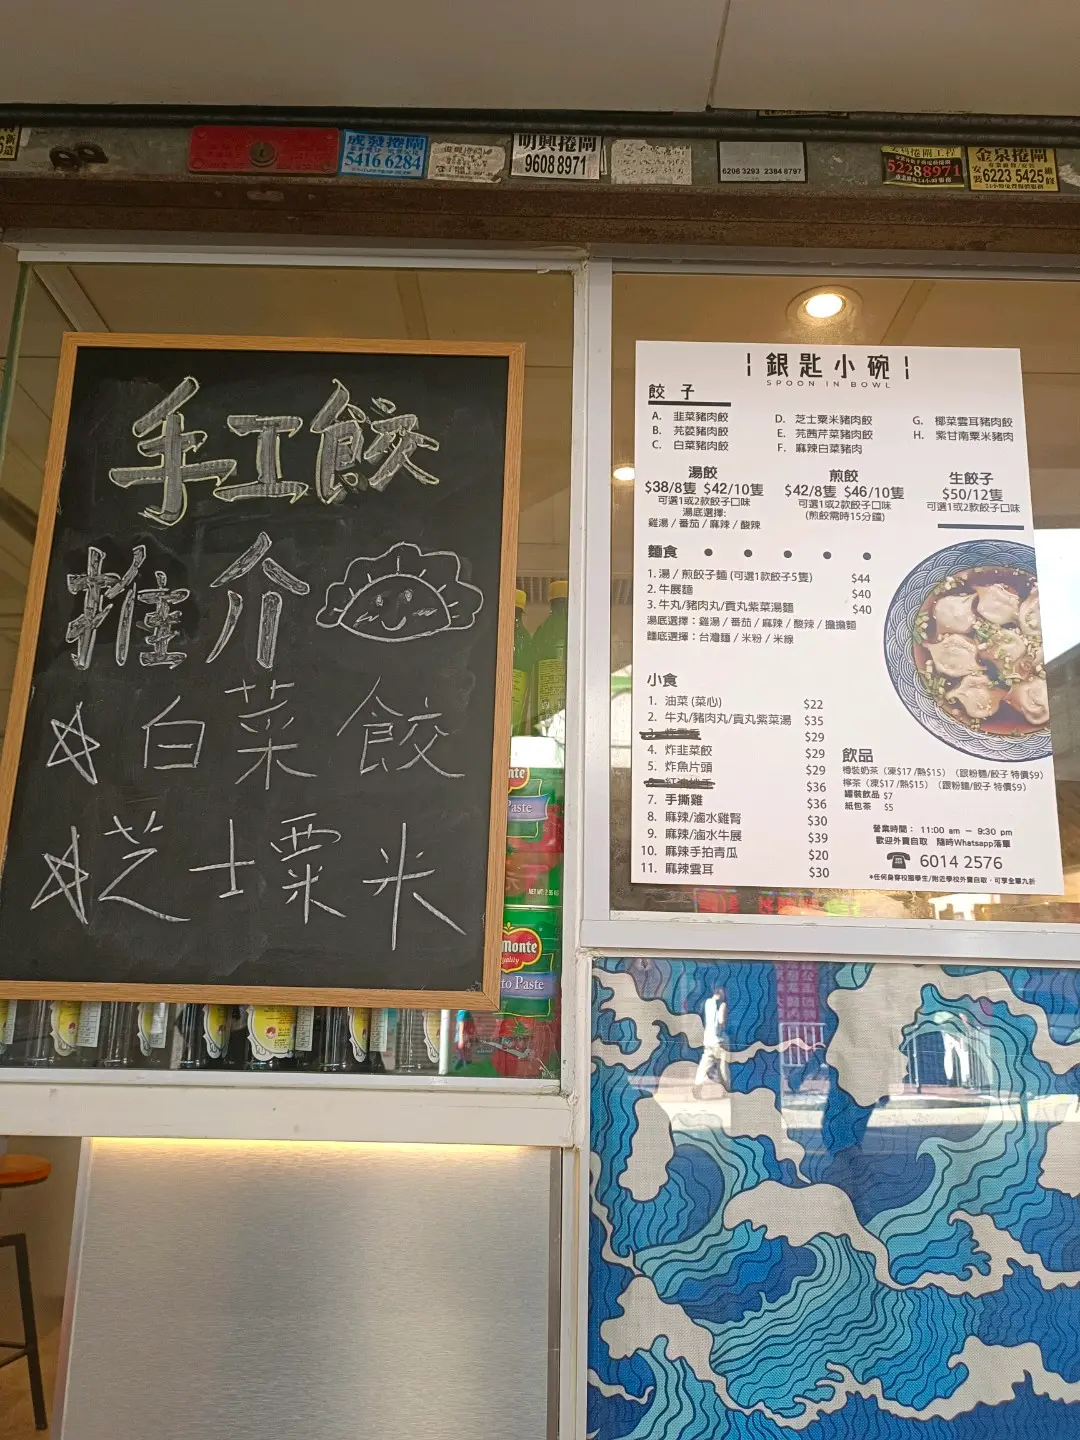 成發捲閘
5416 6284
明興捲閘
9608 8971
6208 3293 2384 8797
52288971
金泉捲閘
安裝 6223 5425 維修
手工餃
推介
白菜餃
芝士粟米
Paste
Monte
Quality
to Paste
銀匙小碗
SPOON IN BOWL
餃子
A. 韭菜豬肉餃
B. 芫荽豬肉餃
C. 白菜豬肉餃
D. 芝士粟米豬肉餃
E. 芫茜芹菜豬肉餃
F. 麻辣白菜豬肉
G. 椰菜雲耳豬肉餃
H. 紫甘南粟米豬肉
湯餃
$38/8隻 $42/10隻
可選1或2款餃子口味
湯底選擇:
雞湯 / 番茄 / 麻辣 / 酸辣
煎餃
$42/8隻 $46/10隻
可選1或2款餃子口味
(煎餃需時15分鐘)
生餃子
$50/12隻
可選1或2款餃子口味
麵食
1. 湯 / 煎餃子麵 (可選1款餃子5隻) $44
2. 牛展麵 $40
3. 牛丸/豬肉丸/貢丸紫菜湯麵 $40
湯底選擇：雞湯 / 番茄 / 麻辣 / 酸辣 / 擔擔麵
麵底選擇：台灣麵 / 米粉 / 米線
小食
1. 油菜 (菜心) $22
2. 牛丸/豬肉丸/貢丸紫菜湯 $35
$29
4. 炸韭菜餃 $29
5. 炸魚片頭 $29
$36
7. 手撕雞 $36
8. 麻辣/滷水雞腎 $30
9. 麻辣/滷水牛展 $39
10. 麻辣手拍青瓜 $20
11. 麻辣雲耳 $30
飲品
樽裝奶茶（凍$17 /熱$15）（跟粉麵/餃子 特價$9）
檸茶（凍$17 /熱$15）（跟粉麵/餃子 特價$9）
罐裝飲品 $7
紙包茶 $5
營業時間： 11:00 am － 9:30 pm
歡迎外賣自取 隨時Whatsapp落單
6014 2576
*任何身穿校服學生/附近學校外賣自取，可享全單九折